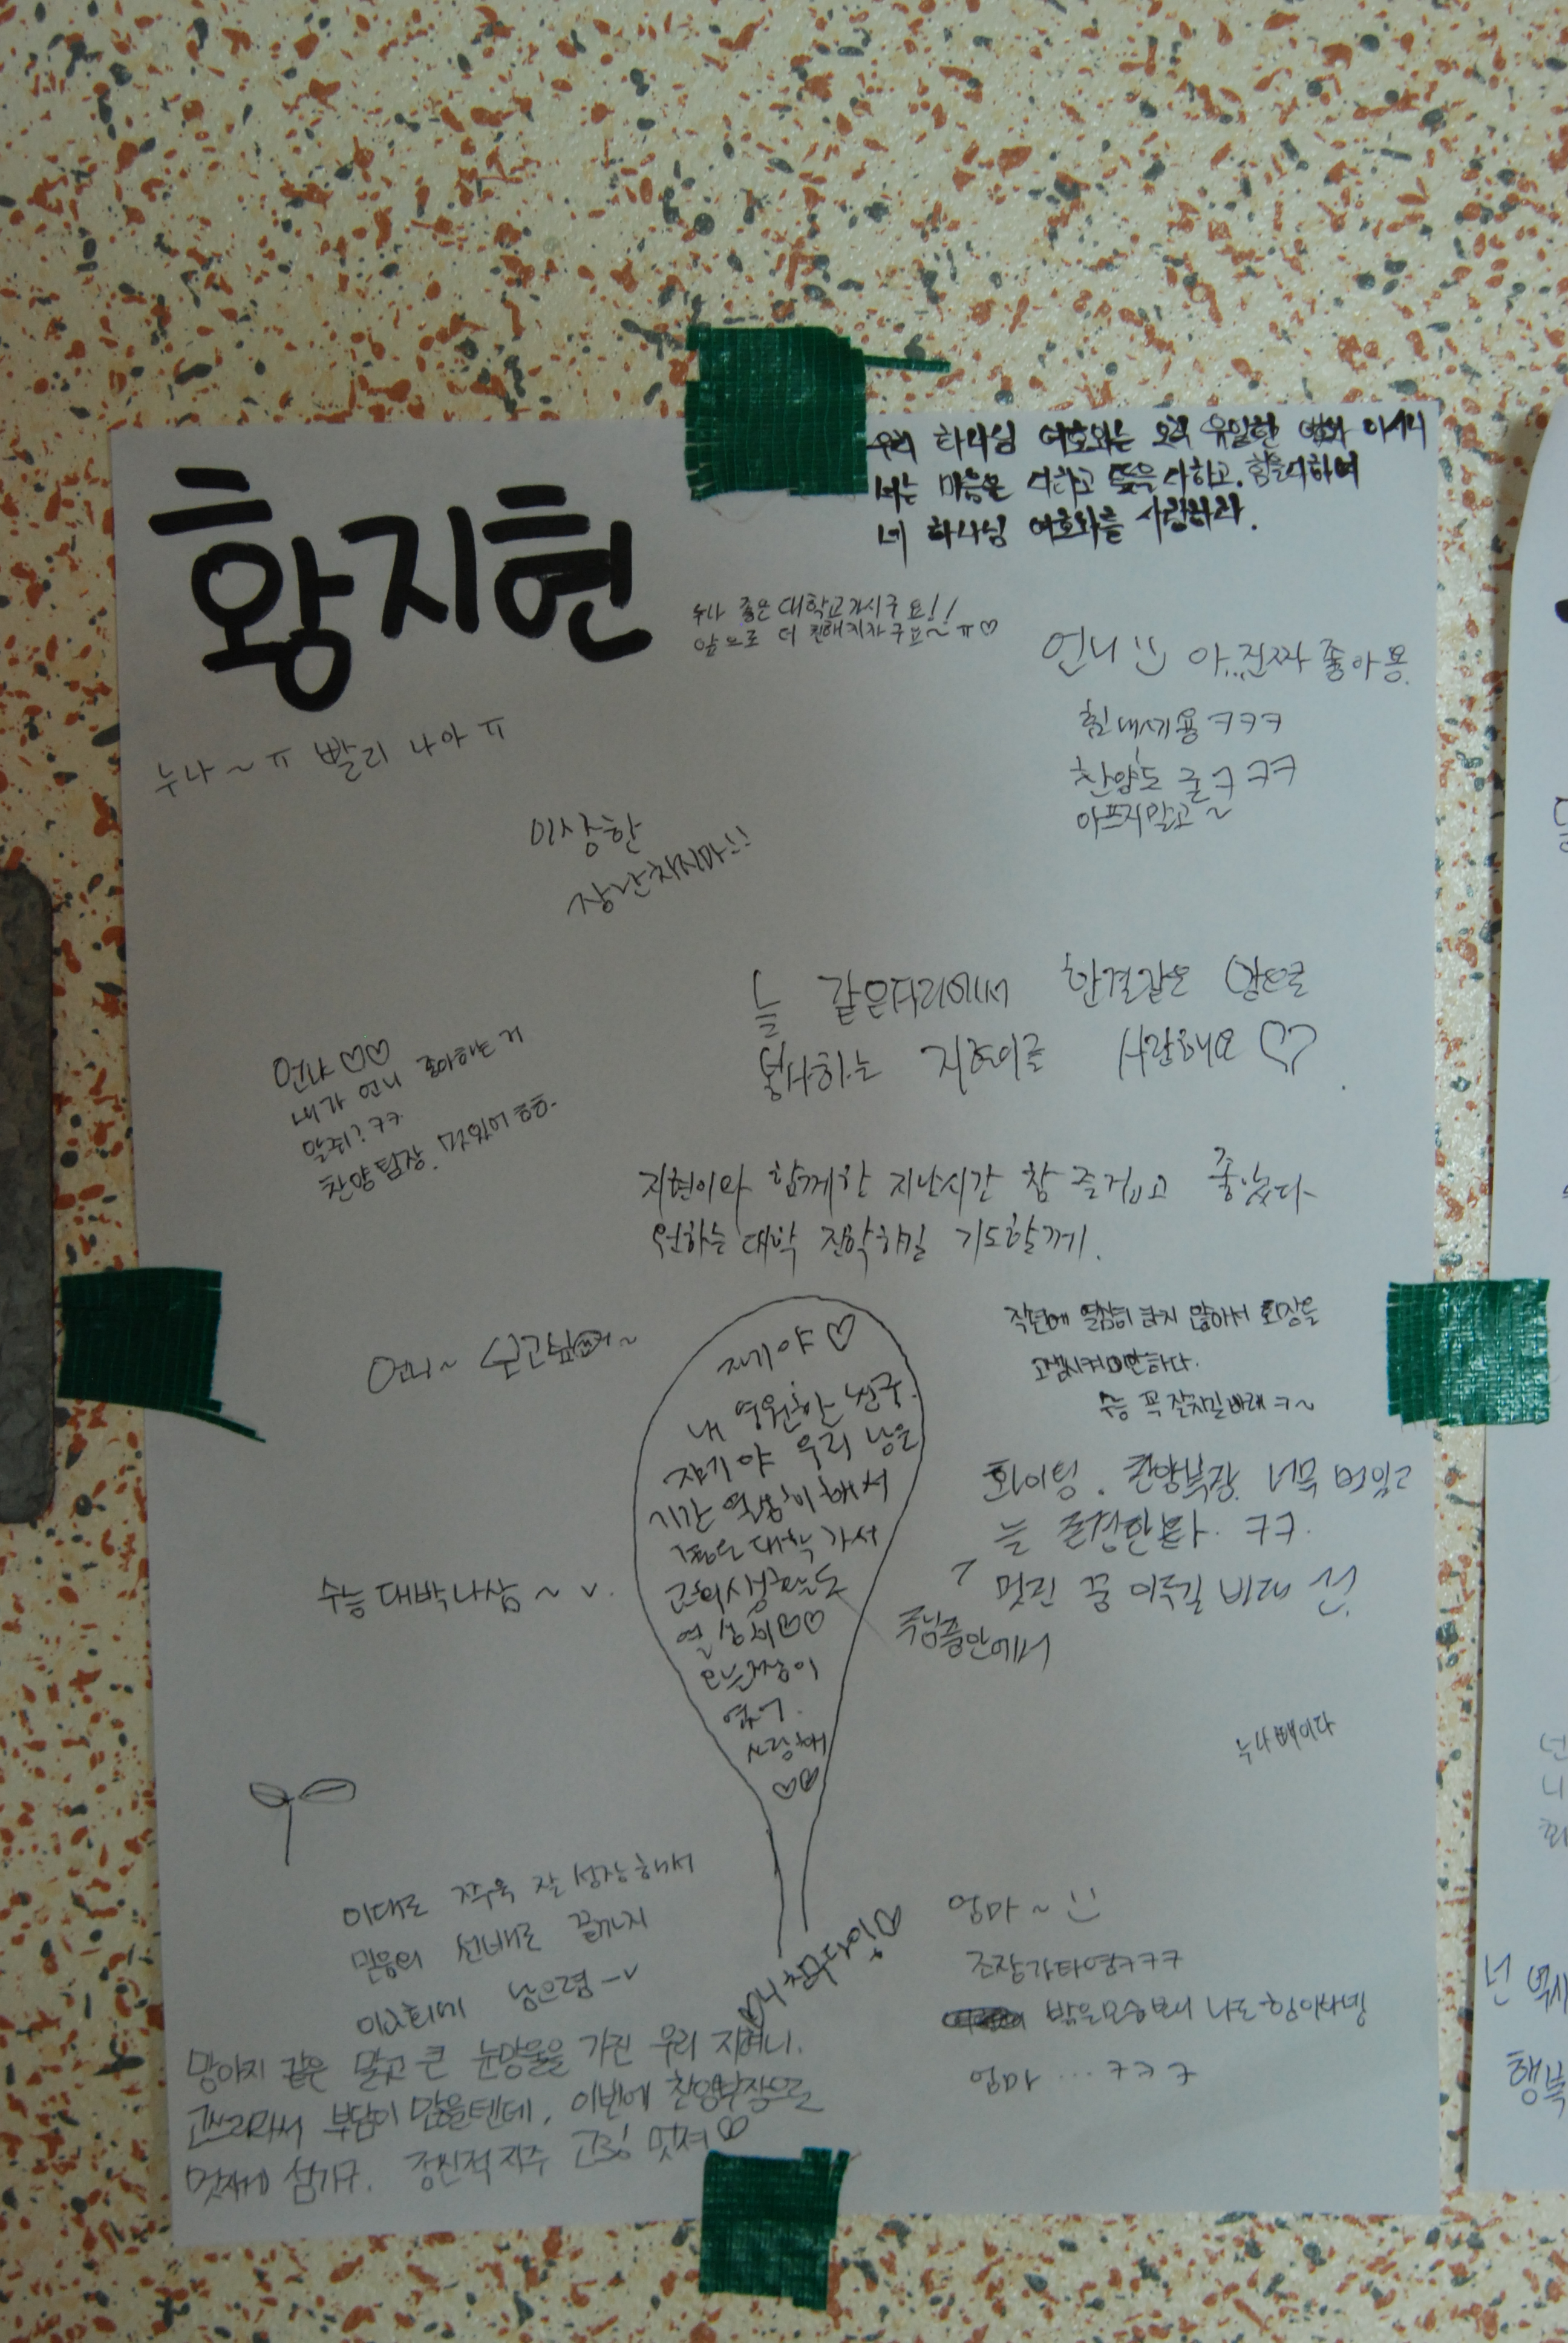 황지현
우리 하나님 여호와는 오직 유일한 여호와 이시니
너는 마음을 다하고 뜻을 다하고. 힘을 다하여
네 하나님 여호와를 사랑하라.
누나 좋은 대학교가시구요!!
앞으로 더 친해지자구요~ㅠ♡
언니 아...진짜 좋아용.
힘내세용 ㅋㅋㅋ
찬양도 굳ㅋㅋㅋ
아프지말고~
누나~ㅠ 빨리 나아ㅠ
이상한
장난치지마!!
늘 같은자리에서 한결같은
사랑해요♡
언냐♡♡
내가 언니 좋아하는 거
알죠? ㅋㅋ
찬양팀장. 멋있어 흐흐.
지현이와 함께한 지난시간 참 즐겁고 좋았다
원하는 대학 진학하길 기도할께.
작년에 열심히 하지 않아서 회장을
고생시켜 미안하다.
수능 꼭 잘치길 바래 ㅋ~
언니~
자기야♡
내 영원한 친구.
자기야 우리 남은
기간 열심히 해서
좋은 대학 가서
열심히♡♡
없어.
사랑해
♡♡
화이팅. 찬양부장. 너무 멋있고
는 ㅋㅋ.
멋진 꿈 이루길 바래
주님품안에서
수능 대박나삼~ v.
누나빼이다
이대로 쭈욱 잘 성장해서
믿음의 선배로 끝까지
이교회에 남으렴 -v
엄마~
조장가타영ㅋㅋㅋ
밝은모습보니 나도 힘이나넹
엄마...ㅋㅋㅋ
망아지 같은 맑고 큰 눈망울을 가진 우리 지혀니.
고3이라서 부담이 많을텐데, 이번에 찬양부장으로
멋지게 섬기구. 정신적 지주 고3! 멋져♡
넌
행복